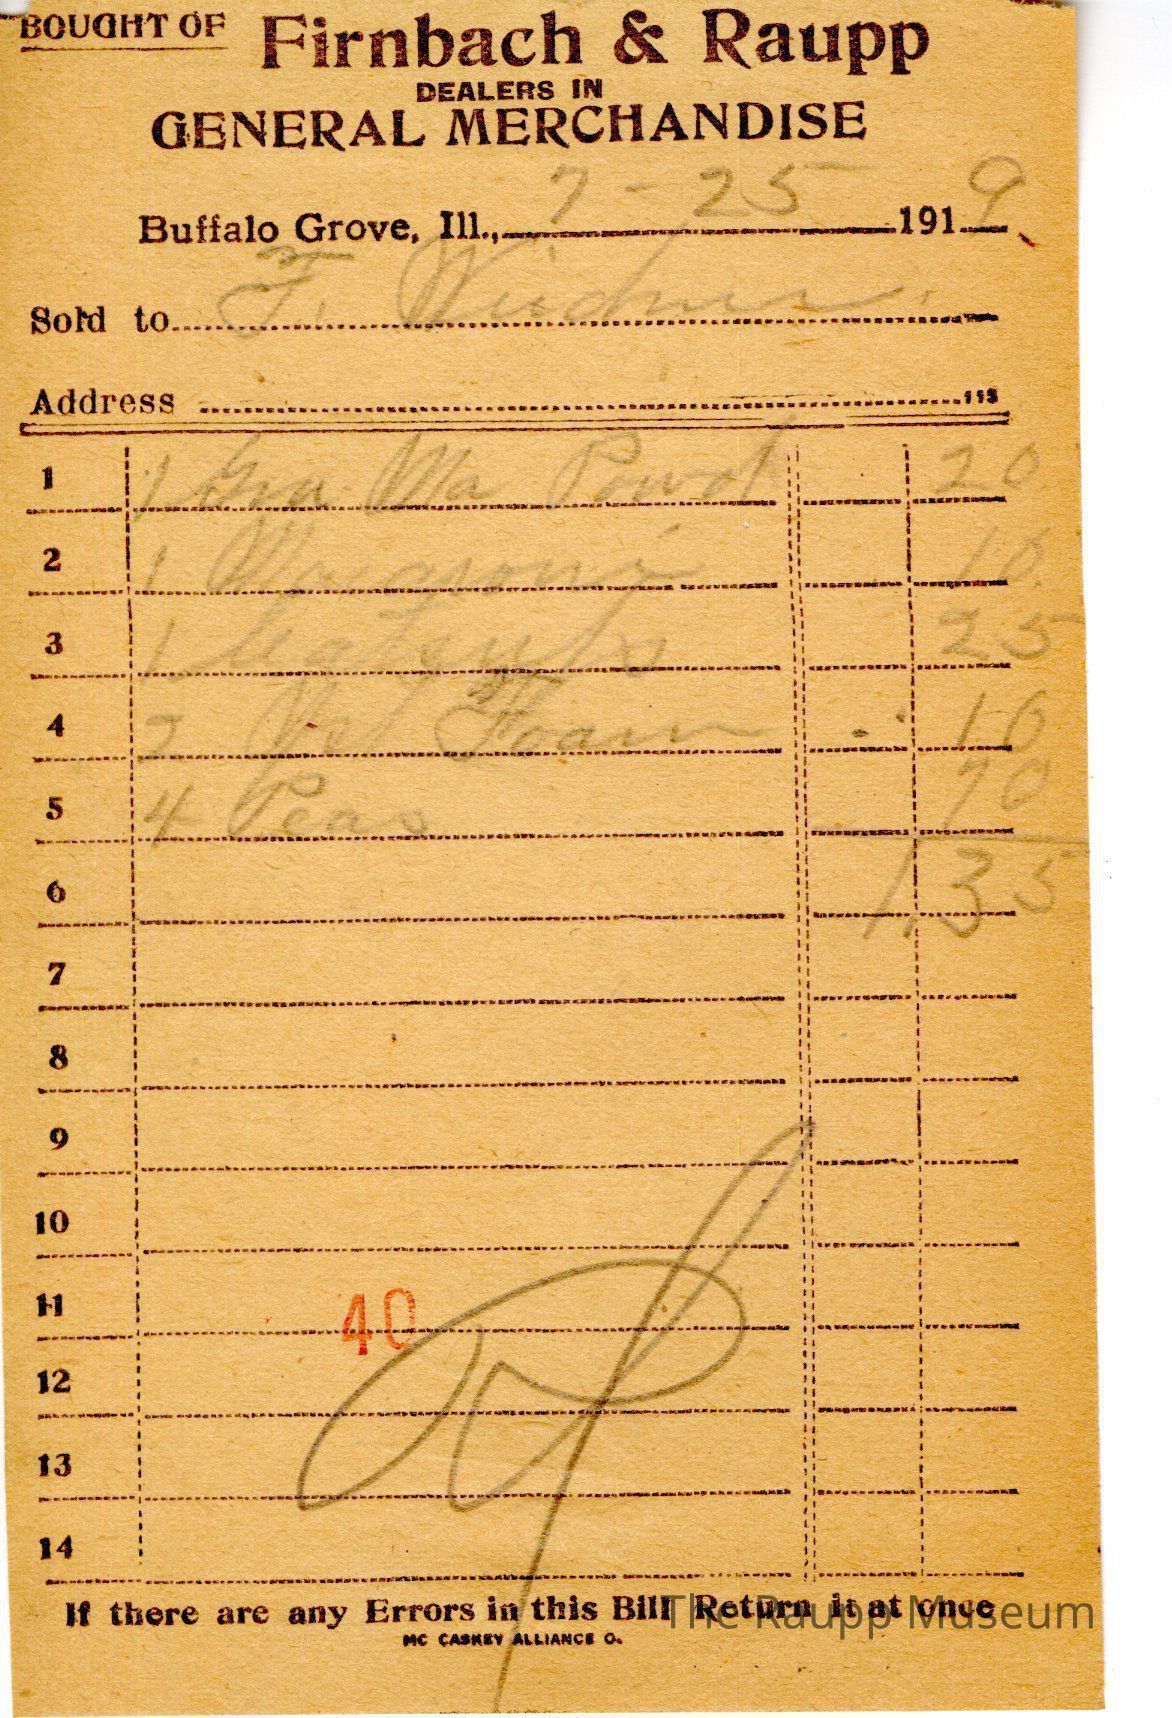 BOUGHT OF Firnbach & Raupp
DEALERS IN
GENERAL MERCHANDISE
Buffalo Grove, Ill., 7-25 1919
Sold to F.
Address
1 1 Gra Ma Powd 20
2 1 10
3 1 Catsup 25
4 2 Foam 10
5 4 Peas 70
6 1.35
7
8
9
10
11 40
12
13
14
If there are any Errors in this Bill Return it at once
MC CASKEY ALLIANCE O.
The Raupp Museum